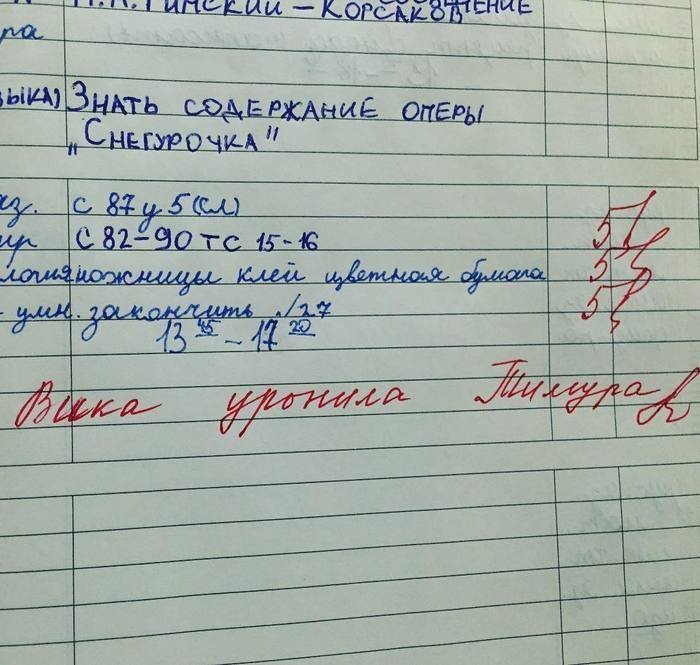 Н.А. Римский – Корсаков
ра
зыка) Знать содержание оперы
„Снегурочка"
аз. с 87 у 5 (сл) 5
ир с 82–90 т с 15–16 5
логия ножницы клей цветная бумага 5
умн. закончить 1/27
13 45 – 17 20
Вика уронила Тимура